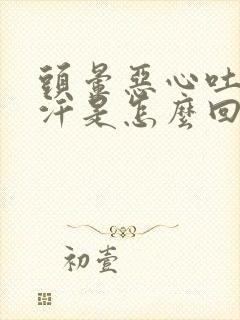 頭暈惡心吐
汗是怎麼回
初壹